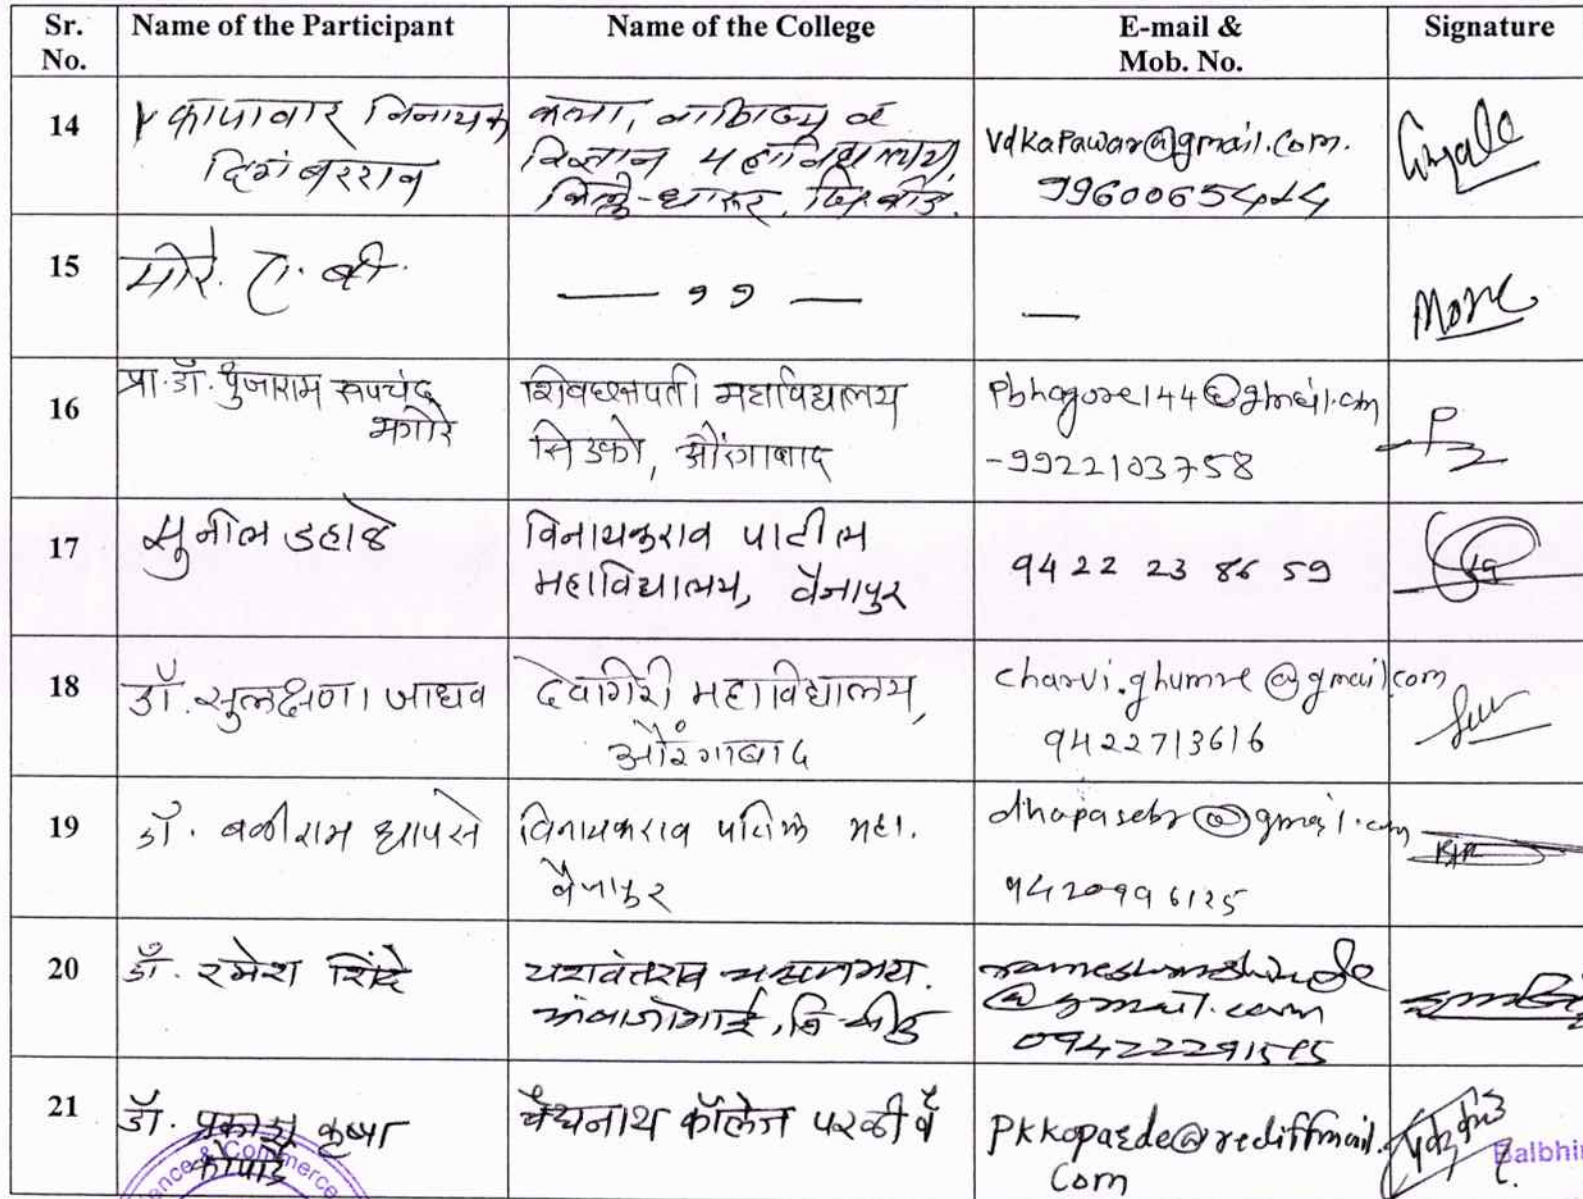 Sr. No. Name of the Participant Name of the College E-mail & Mob. No. Signature
14 कापावार विनायक दिगंबरराव कला, वाणिज्य व विज्ञान महाविद्यालय, किल्ले-धारूर, जि. बीड. vdkapawar@gmail.com.
15 मोरे. टी. बी. — ,, — — More
16 प्रा. डॉ. पुंजाराम रूपचंद भगोरे शिवछत्रपती महाविद्यालय सिडको, औरंगाबाद pbhagore144@gmail.com -9922103758
17 सुनील डहाळे विनायकराव पाटील महाविद्यालय, वैजापुर 94 22 23 86 59
18 डॉ. सुलक्षणा जाधव देवगिरी महाविद्यालय, औरंगाबाद charvi.ghumre@gmail.com 9422713616
19 डॉ. बळीराम धापसे विनायकराव पाटील महा. वैजापुर dhapasebr@gmail.com 9420996125
20 डॉ. रमेश शिंदे यशवंतराव अंबाजोगाई, जि-बीड @gmail.com
21 डॉ. प्रकाश कृष्णा कोपार्डे वैद्यनाथ कॉलेज परळी वै pkkoparde@rediffmail.com
ence & Commerce
Balbhi